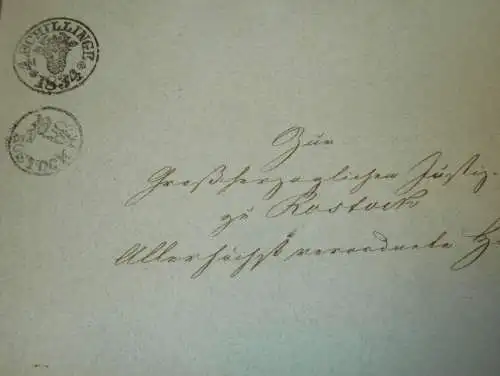 4 SCHILLINGE
1834
ROSTOCK
Zur
Großherzoglichen Justiz-
zu Rostock
Allerhöchst verordnete